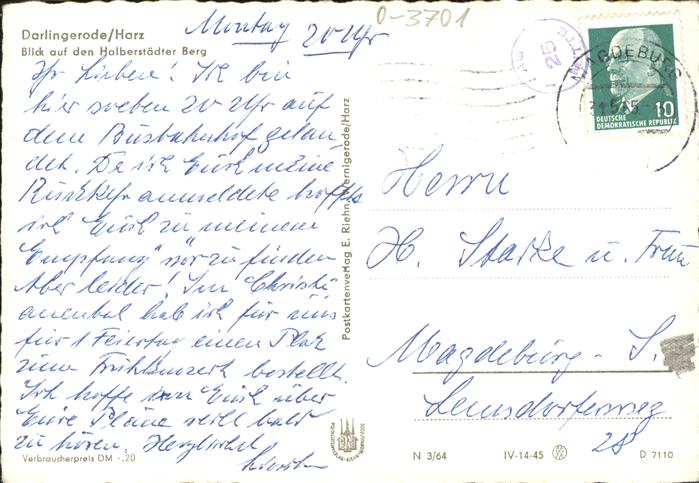 Darlingerode/Harz
Blick auf den Halberstädter Berg
Montag 20 Uhr
0-3701
Ihr Lieben! Ich bin
hier soeben 20 Uhr auf
dem Busbahnhof gelan-
det. Da ich Euch meine
Rückkehr anmeldete hoffte
ich Euch zu meinem
"Empfang" vorzufinden
Aber leider! Im Christi-
anental hab ich für uns
für 1 Feiertag einen Platz
zum Frühkonzert bestellt.
Ich hoffe von Euch über
Eure Pläne recht bald
zu hören. Herzlichst
Verbraucherpreis DM -.20
Postkartenverlag E. Riehn, Wernigerode/Harz
MAGDEBURG
25
10
DEUTSCHE
DEMOKRATISCHE REPUBLIK
Herrn
H. Starke u. Frau
Magdeburg-S.
Lemsdorferweg
28
N 3/64
IV-14-45
D 7110